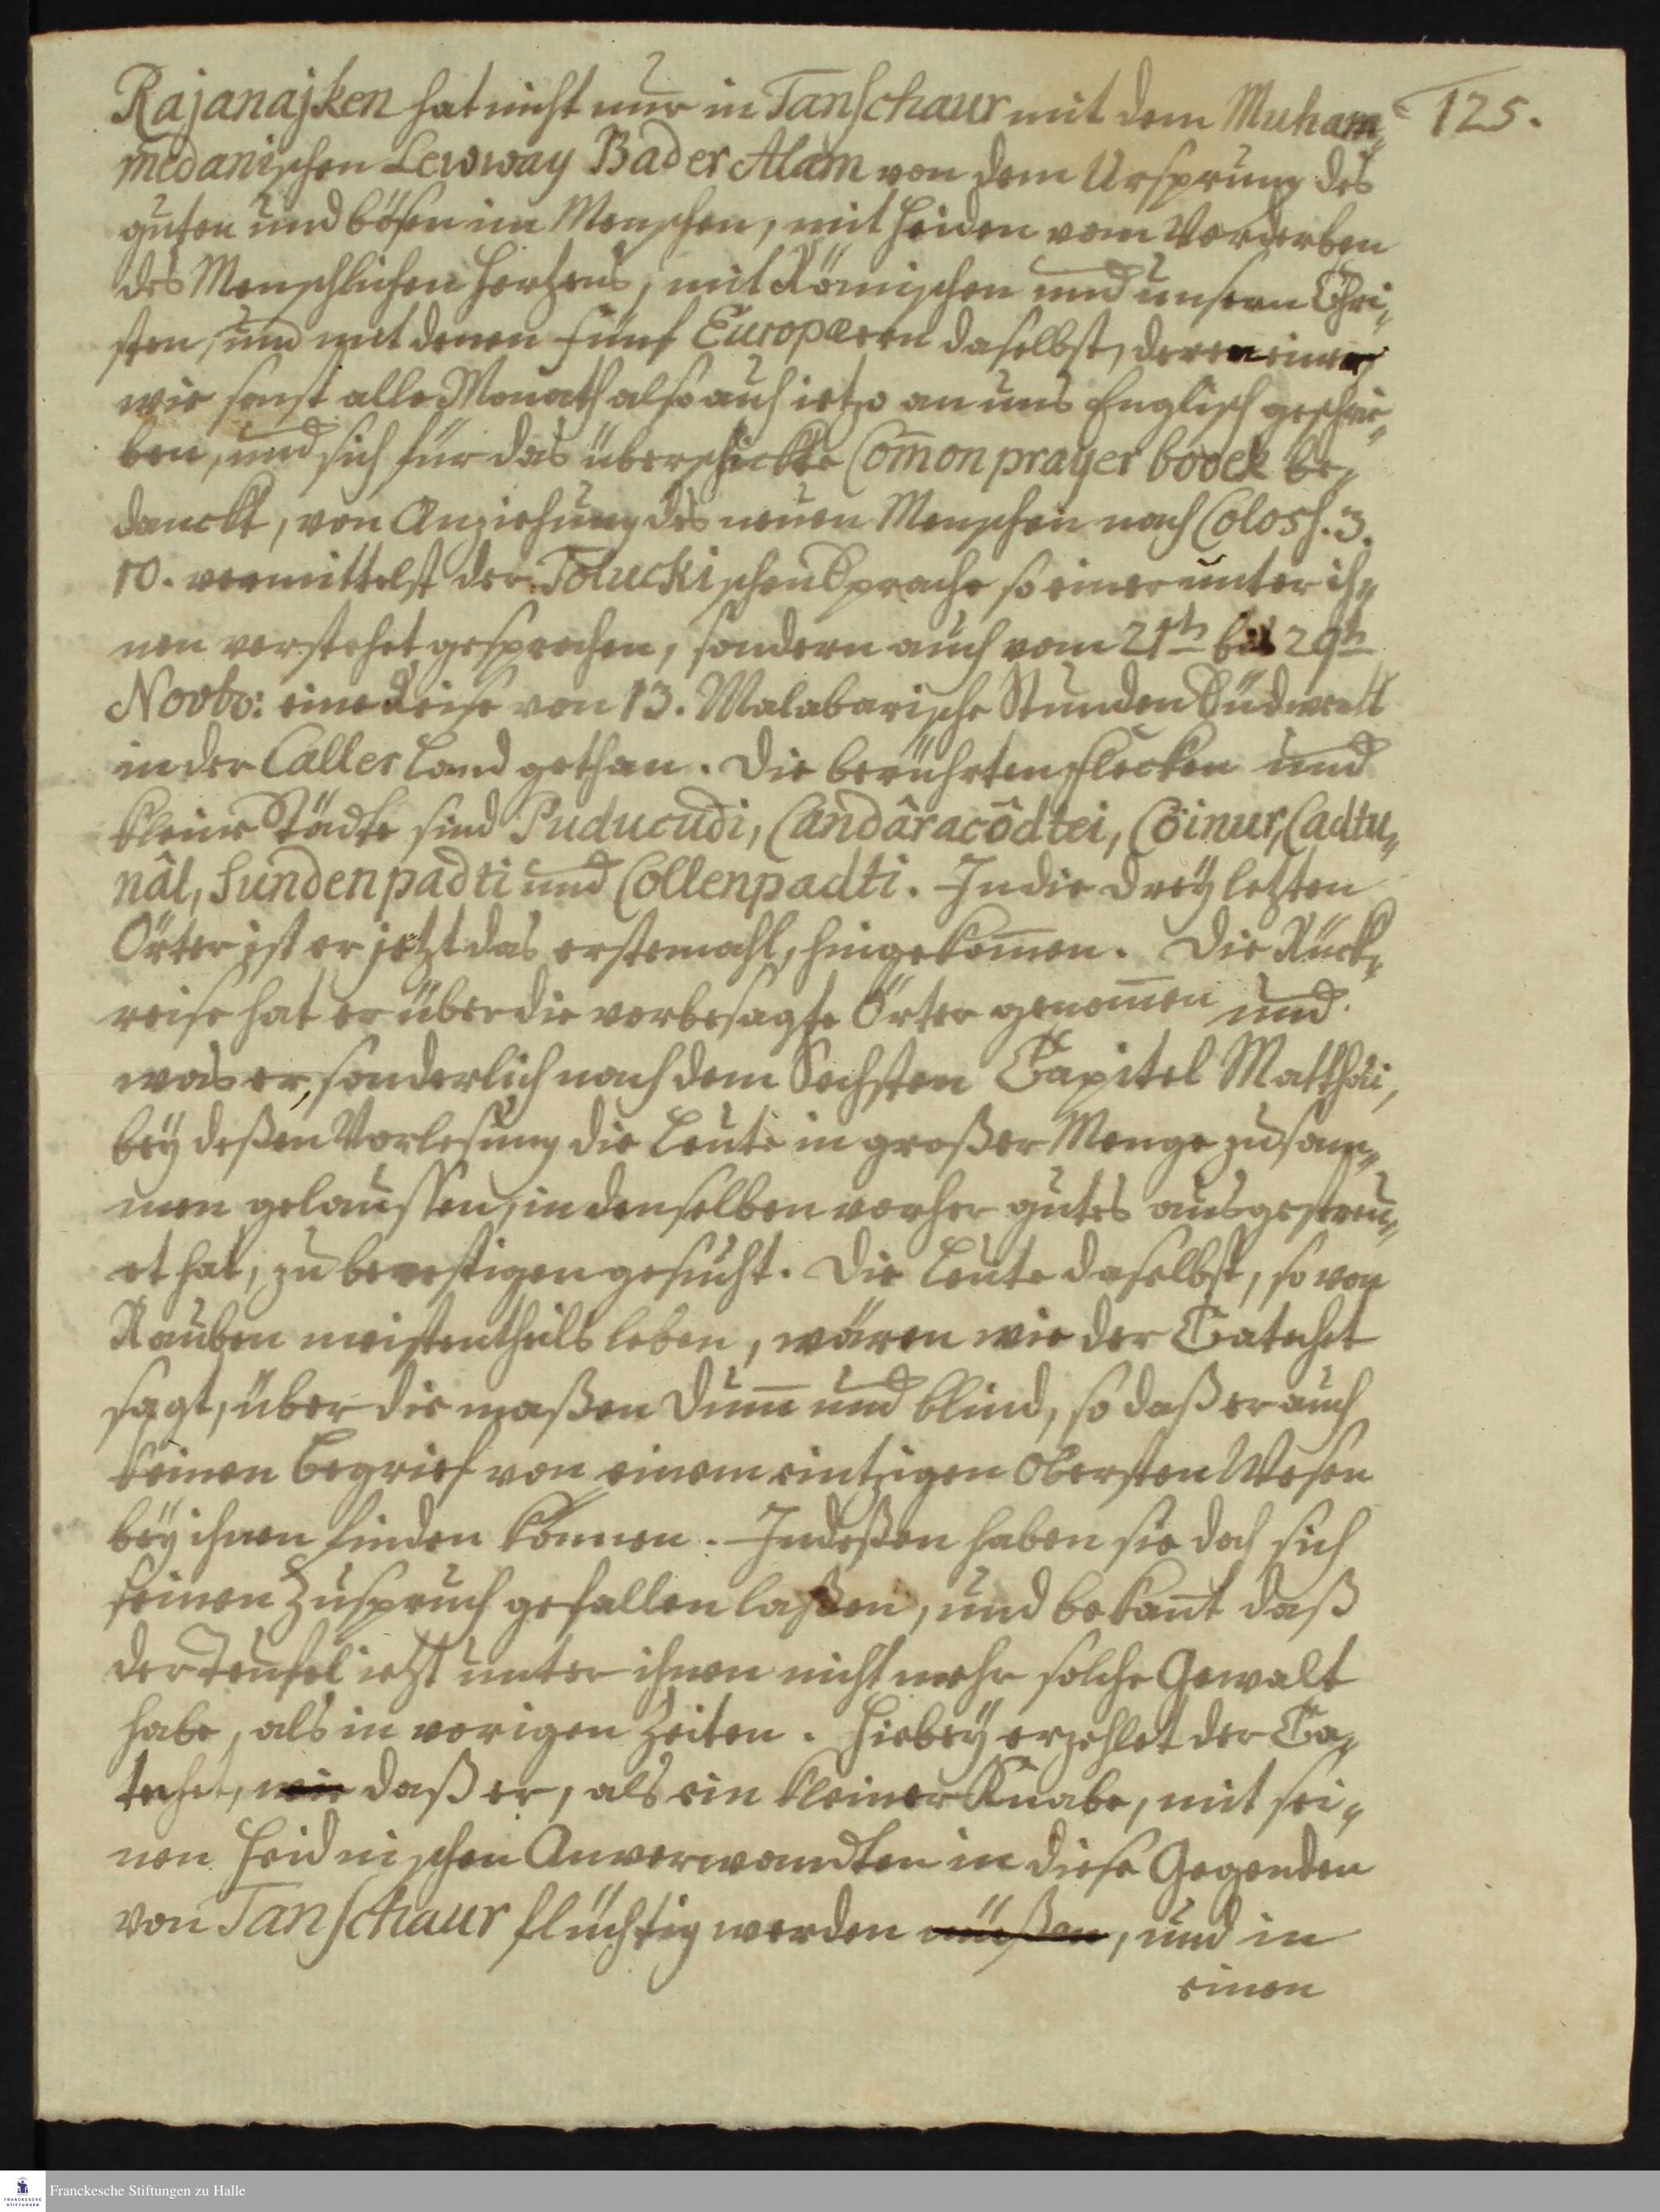 125.
Rajanajken hat nicht nur in Tanschaur mit dem Muham¬
medanischen Lewway Bader Alam von dem Ursprung des
guten und bösen im Menschen, mit Heiden vom Verderben
des Menschlichen Hertzens, mit Römischen und unsern Chri¬
sten, und mit denen fünf Europæern daselbst, deren einer
wie sonst alle Monath also auch ietzo an uns Englisch geschrie¬
ben, und sich für das überschickte Com̄on prayer boock be¬
danckt, von Anziehung des neuen Menschen nach Coloss. 3.
10. vermittelst der Toluckischen Sprache so einer unter ih¬
nen verstehet gesprochen, sondern auch vom 21th bis 29th
Novbr: eine Reise von 13. Malabarische Stunden Südwerts
in der Caller Land gethan. Die berührten Flecken und
kleine Städte sind Puducudi, Candâracôdtei, Cöinur, Cadtu¬
nâl, Sundenpadti und Collenpadti. In die drey letzten
Örter ist er jetzt das erstemahl, hingekom̄en. Die Rück¬
reise hat er über die vorbesagte Örter genom̄en und
was er, sonderlich nach dem Sechsten Capitel Matthäi,
bey deßen Vorlesung die Leute in großer Menge zusam¬
men gelauffen, in denselben vorher gutes ausgestreu¬
et hat, zu bevestigen gesucht. Die Leute daselbst, so von
Rauben meistentheils leben, wären wie der Catechet
sagt, über die maßen dum̄ und blind, so daß er auch
keinen Begrief von einem eintzigen Obersten Wesen
bey ihnen finden können. Indeßen haben sie doch sich
seinen Zuspruch gefallen laßen, und bekan̄t daß
der Teufel ietzt unter ihnen nicht mehr solche Gewalt
habe, als in vorigen Zeiten. Hiebey erzehlet der Ca¬
techet, wie daß er, als ein kleiner Knabe, mit sei¬
nen Heidnischen Anverwandten in diese Gegenden
von Tanschaur flüchtig werden müßen, und in
einen
Franckesche Stiftungen zu Halle
FRANCKESCHE
STIFTUNGEN